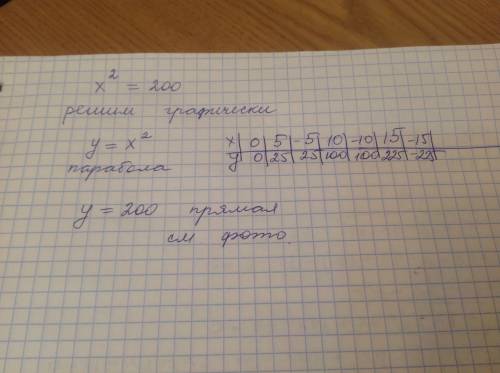 x² = 200
решим графически
y = x²
парабола
x | 0 | 5 | -5 | 10 | -10 | 15 | -15
y | 0 | 25 | 25 | 100 | 100 | 225 | -225
y = 200 прямая
см фото.